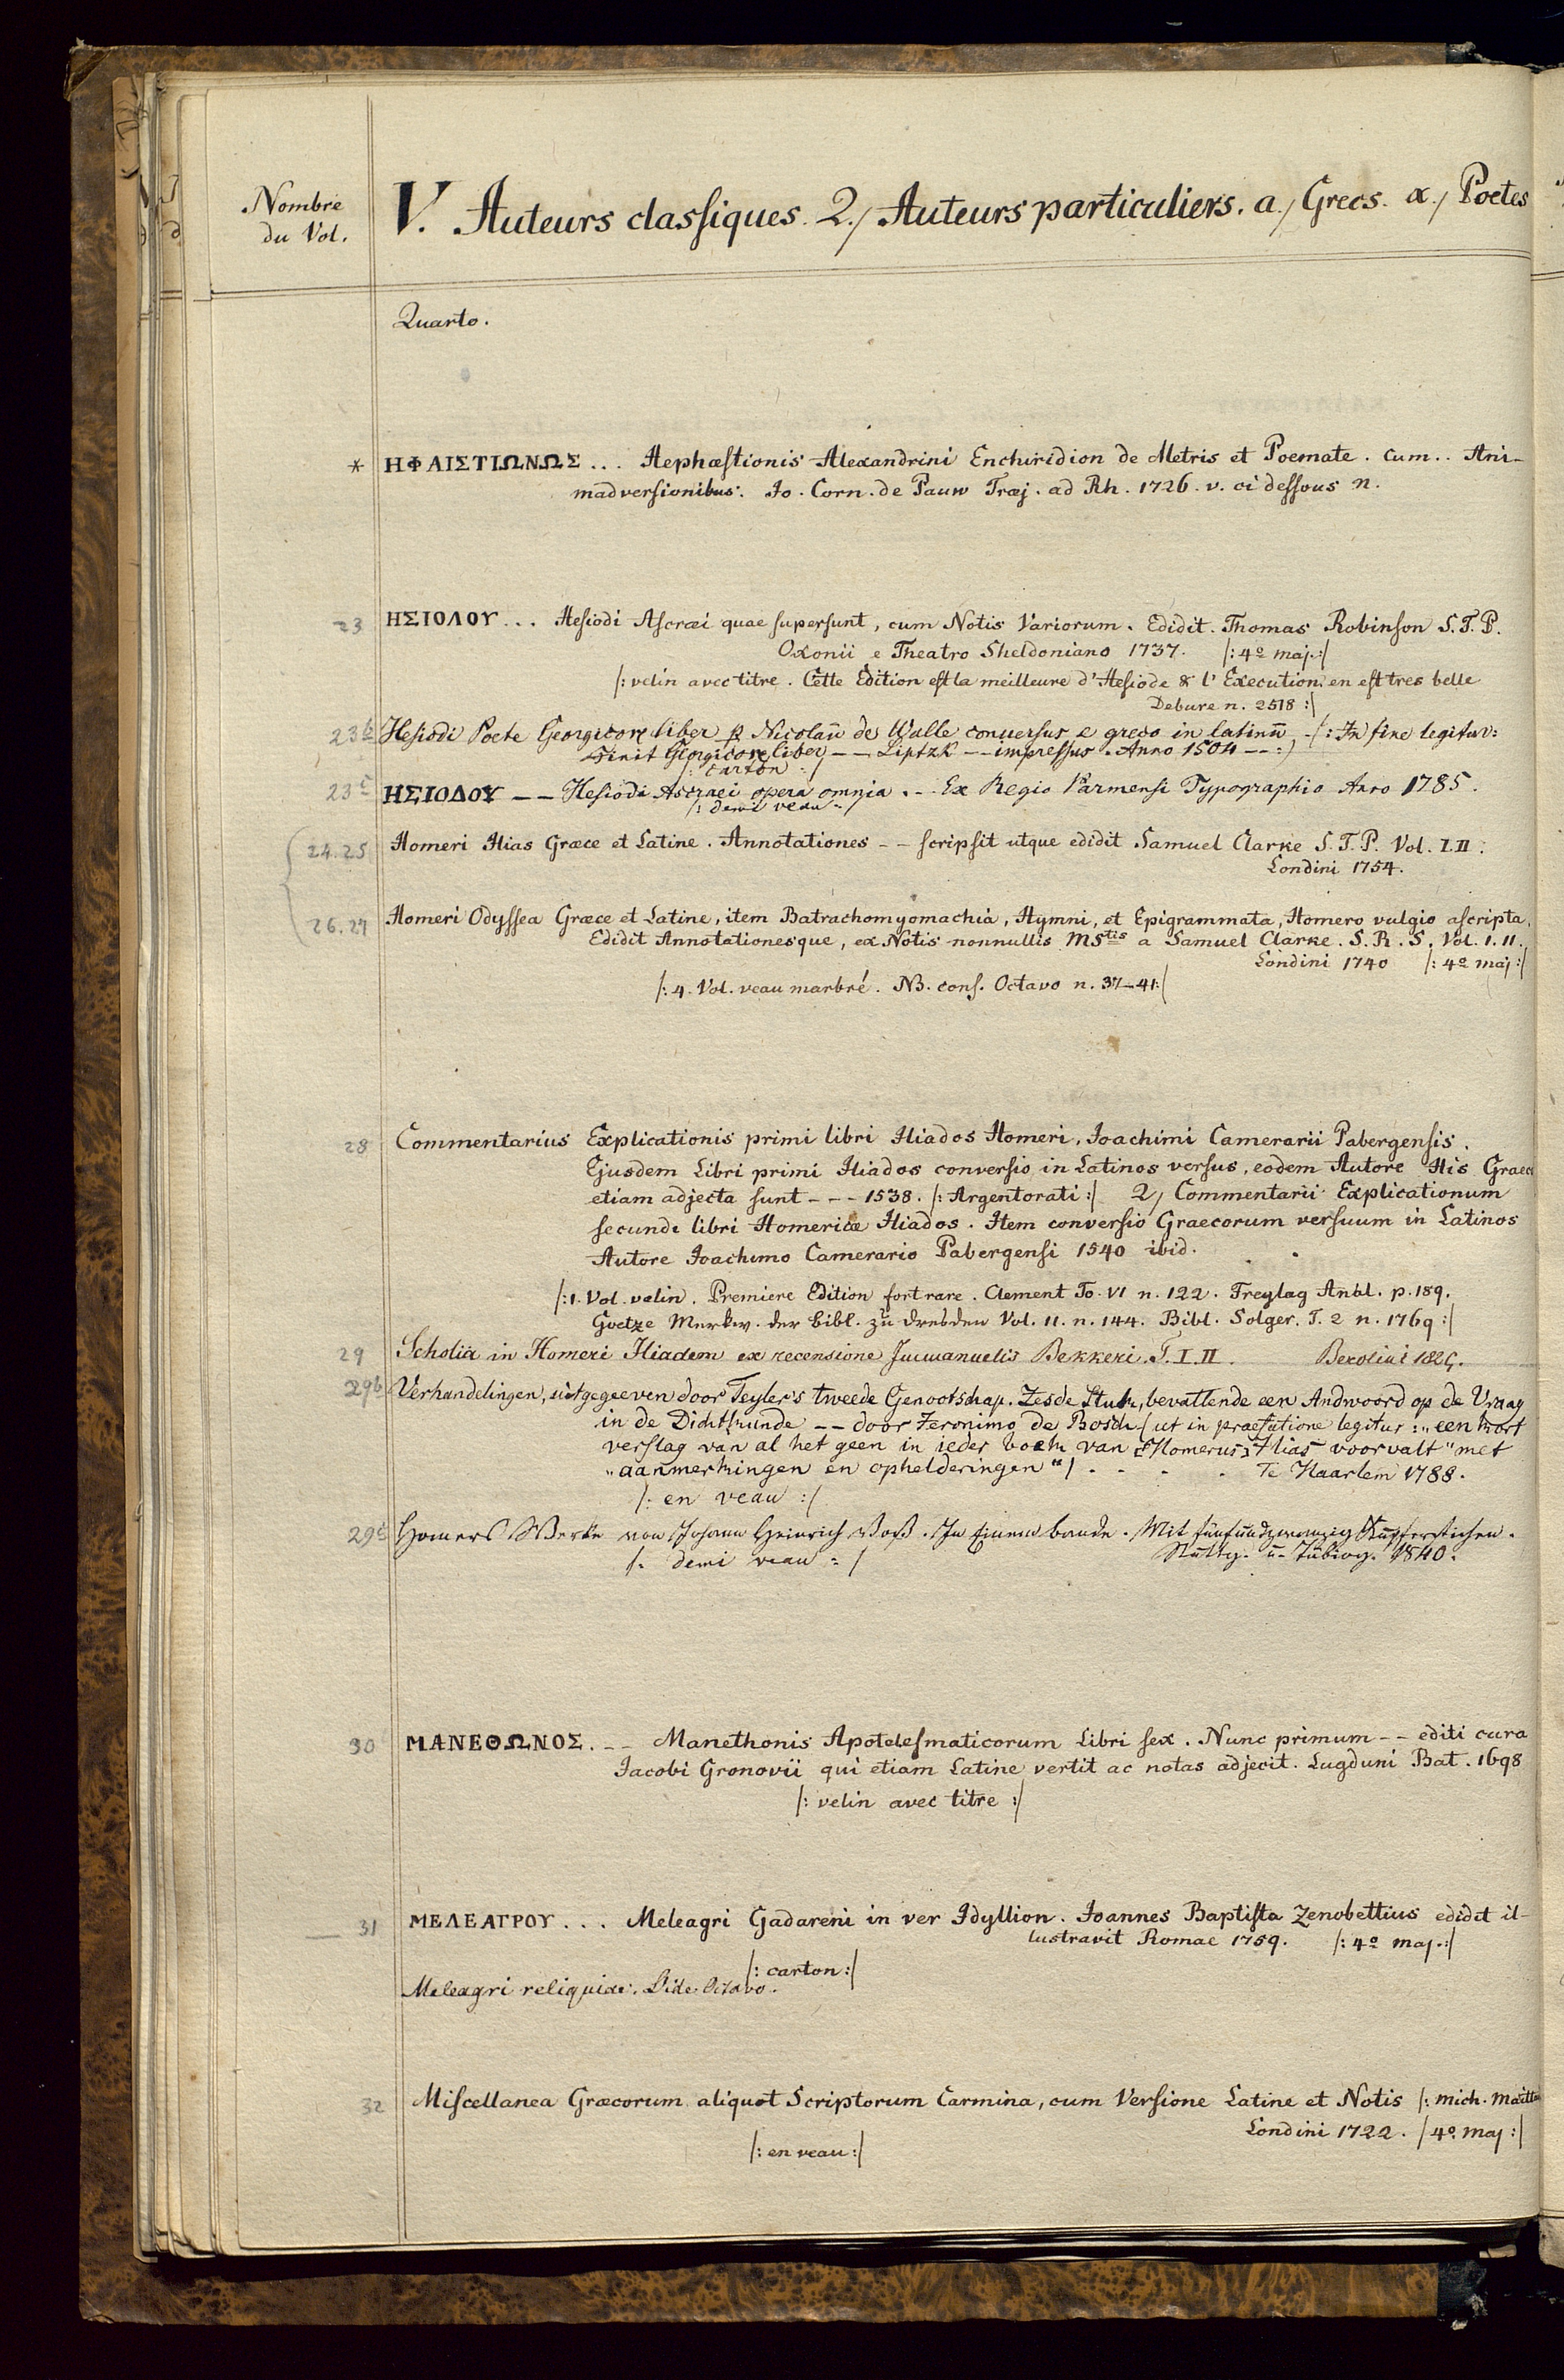 Nombre
du Vol.
V. Auteurs classiques. 2./ Auteurs particuliers. a./ Grecs. α./ Poetes
Quarto.
* ΗΦΑΙΣΤΙΩΝΩΣ... Hephæstionis Alexandrini Enchiridion de Metris et Poemate. Cum.. Ani-
madversionibus. Jo. Corn. de Pauw Traj. ad Rh. 1726. v. ci dessous n.
23 ΗΣΙΟΛΟΥ... Hesiodi Ascræi quae supersunt, cum Notis Variorum. Edidit. Thomas Robinson S.T.P.
Oxonii e Theatro Sheldoniano 1737. /: 4º maj.:/
/: velin avec titre. Cette Edition est la meilleure d'Hesiode & l'Execution en est tres belle
Debure n. 2518 :/
23b Hesiodi Poete Georgicorꝝ liber p Nicolaū de Ualle conuersus e greco in latinū -/: In fine legitur:
Finit Georgicorꝝ liber -- Liptzk -- impressus. Anno 1504 -- :/
/: carton :/
23c ΗΣΙΟΔΟΥ -- Hesiodi Ascraei opera omnia. -- Ex Regio Parmensi Typographio Anno 1785.
/: demi veau :/
24.25 Homeri Ilias Græce et Latine. Annotationes -- scripsit atque edidit Samuel Clarke S.T.P. Vol. I.II.
Londini 1754.
26.27 Homeri Odyssea Græce et Latine, item Batrachomyomachia, Hymni, et Epigrammata, Homero vulgio ascripta.
Edidit Annotationesque, ex Notis nonnullis MStis a Samuel Clarke. S.R.S. Vol. I.II.
Londini 1740 /: 4º maj :/
/: 4. Vol. veau marbré. NB. conf. Octavo n. 37-41:/
28 Commentarius Explicationis primi libri Iliados Homeri, Joachimi Camerarii Pabergensis.
Ejusdem Libri primi Iliados conversio in Latinos versus, eodem Autore His Graec
etiam adjecta sunt --- 1538. /: Argentorati :/ 2/ Commentarii Explicationum
secundi libri Homericæ Iliados. Item conversio Graecorum versuum in Latinos
Autore Joachimo Camerario Pabergensi 1540 ibid.
/: 1. Vol. velin. Premiere Edition fort rare. Clement To. VI n. 122. Freylag Anbl. p. 189.
Goetze Merkw. der Bibl. zu Dresden Vol. II. n. 144. Bibl. Solger. T. 2 n. 1769 :/
29 Scholia in Homeri Iliadem ex recensione Immanuelis Bekkeri. T. I. II. Berolini 1825.
29b Verhandelingen, uitgegeeven door Teyler's tweede Genootschap. Zesde Stuk, bevattende een Andwoord op de Vraag
in de Dichtkunde -- door Jeronimo de Bosch / ut in praefatione legitur: „een kort
verslag van al het geen in ieder boek van Homerus Ilias voorvalt" met
„aanmerkingen en ophelderingen"/ . . . . Te Haarlem 1788.
/: en veau :/
29c Homers Werke von Johann Heinrich Voß. In Einem bande. Mit fünfundzwanzig Kupferstichen.
/: demi veau :/ Stuttg. u. Tübing. 1840.
30 ΜΑΝΕΘΩΝΟΣ. -- Manethonis Apotelesmaticorum Libri sex. Nunc primum -- editi cura
Jacobi Gronovii qui etiam Latine vertit ac notas adjecit. Lugduni Bat. 1698
/: velin avec titre :/
31 ΜΕΛΕΑΓΡΟΥ... Meleagri Gadareni in ver Idyllion. Joannes Baptista Zenobettius edidit il-
lustravit Romae 1759. /: 4º maj.:/
/: carton :/
Meleagri reliquiae. Vide Octavo.
32 Miscellanea Græcorum aliquot Scriptorum Carmina, cum Versione Latine et Notis /: Mich. Maitta
Londini 1722. / 4º. Maj :/
/: en veau :/